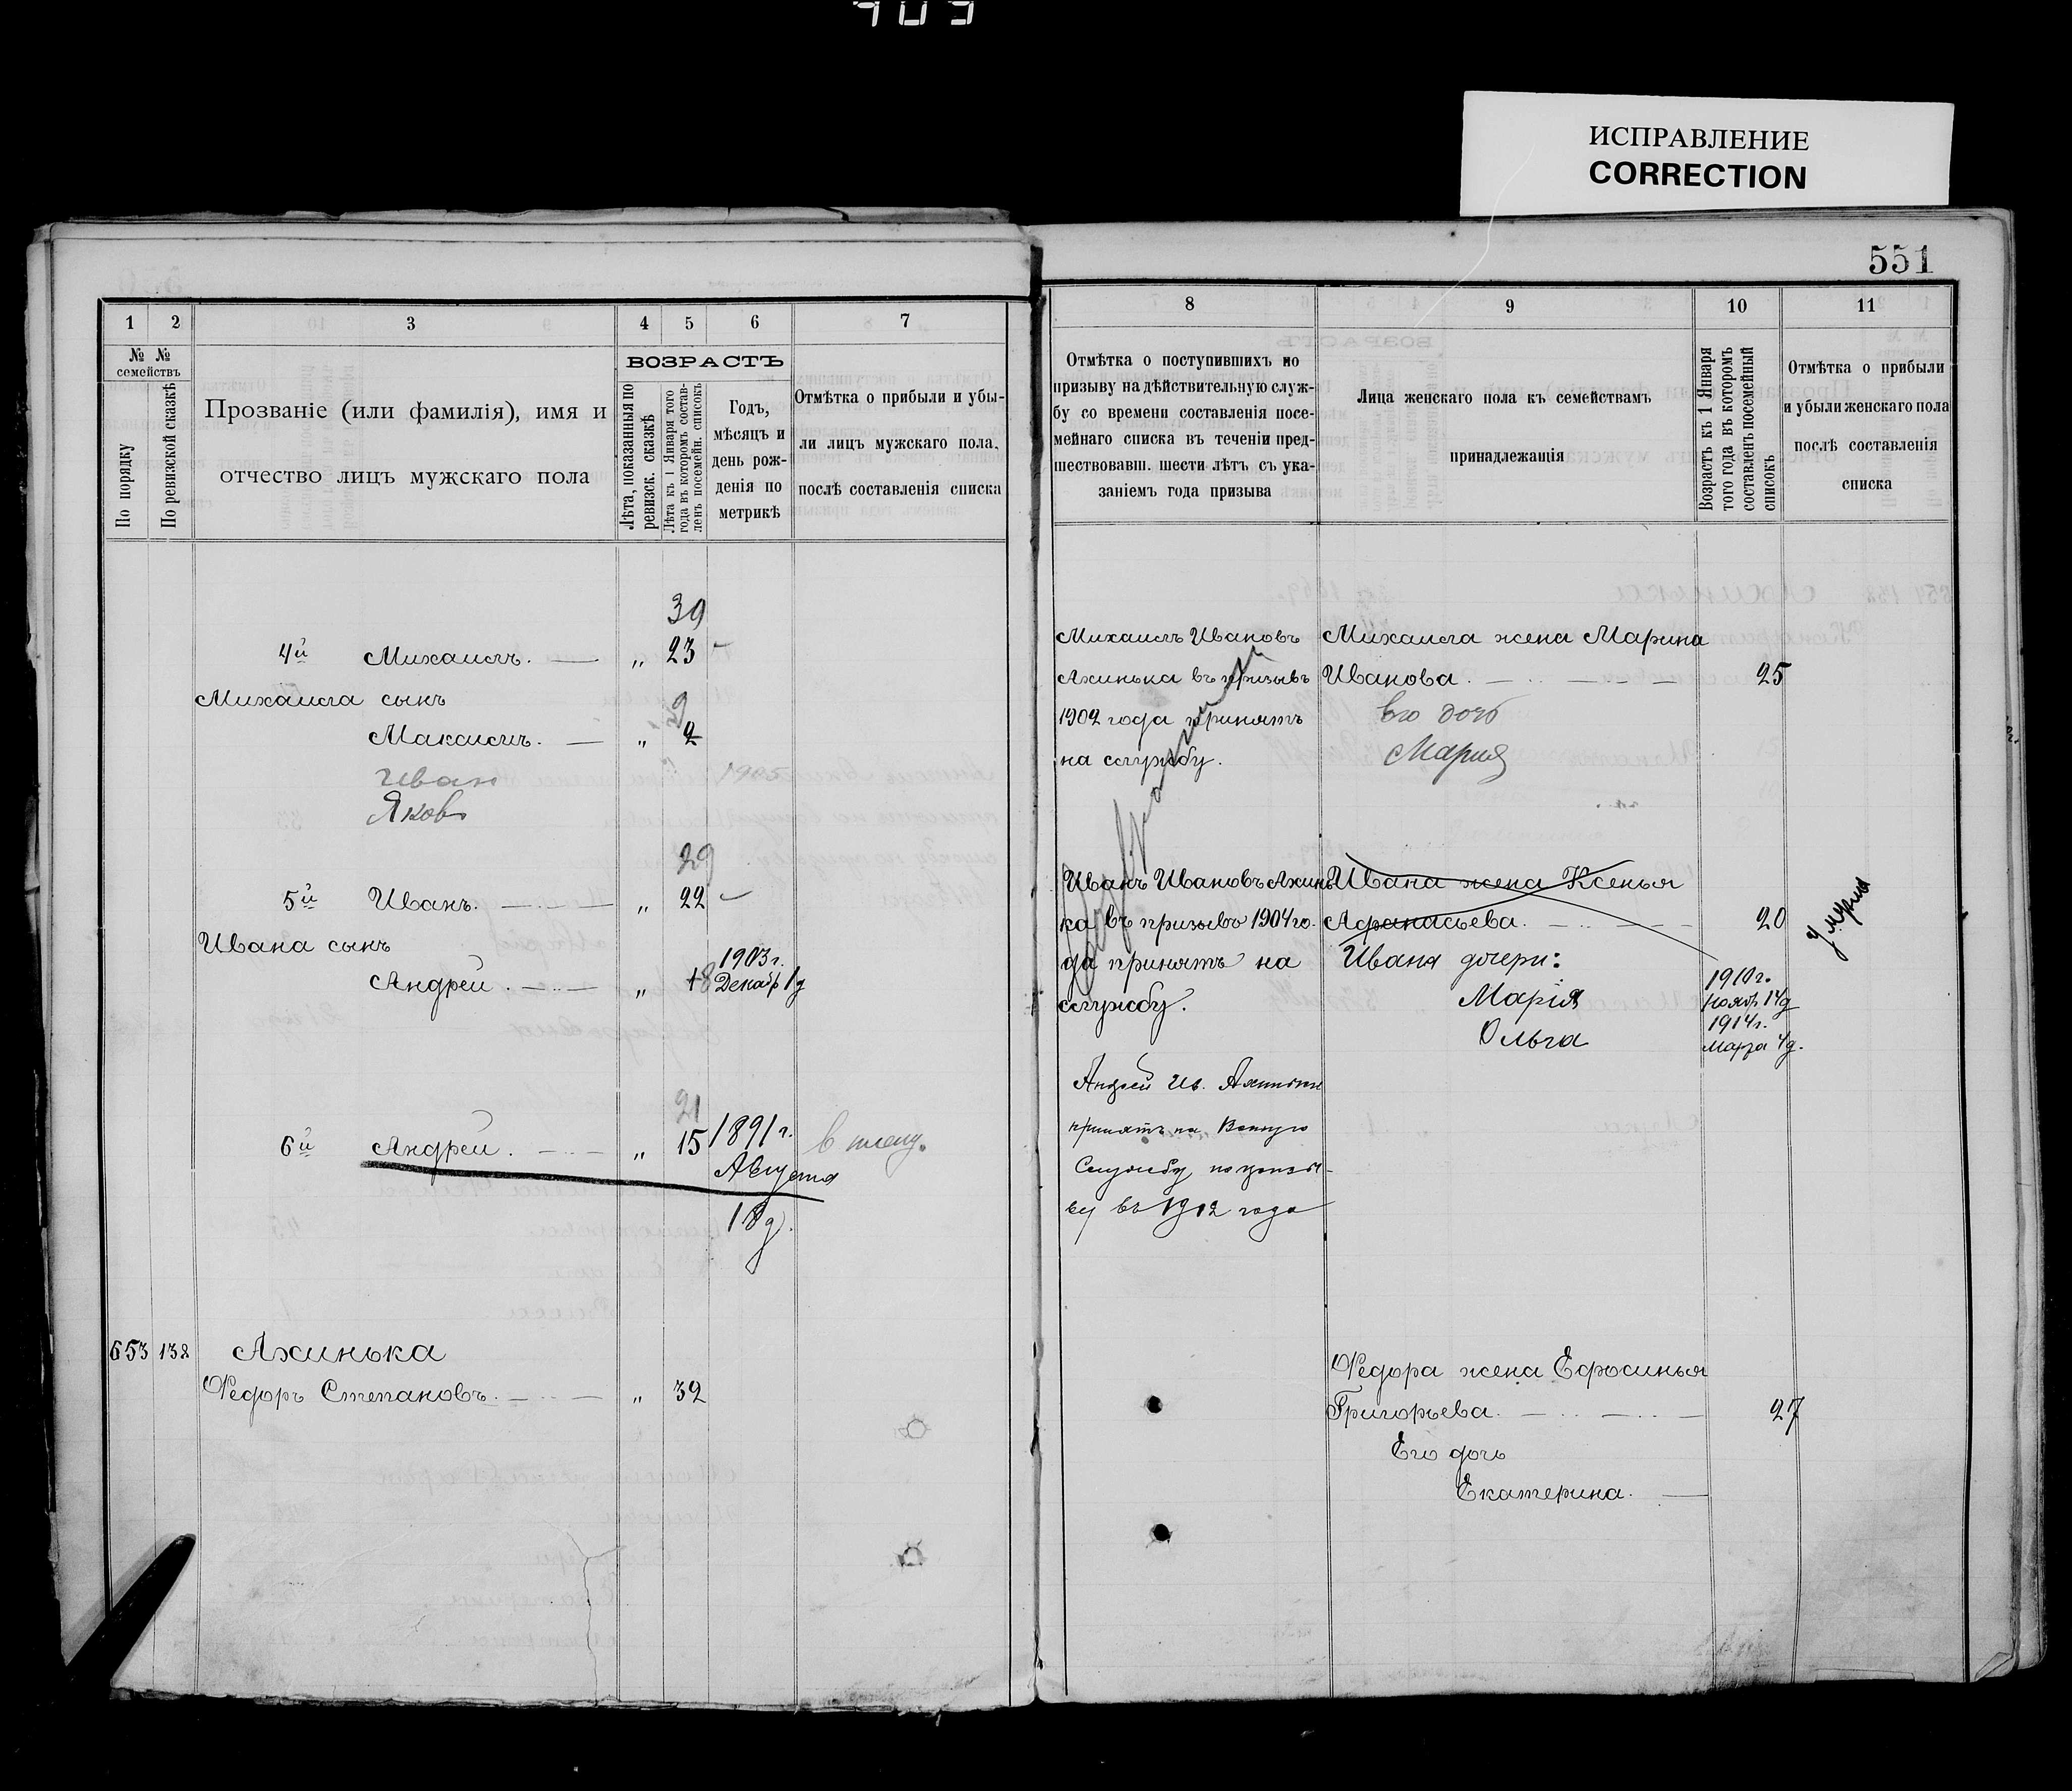 ИСПРАВЛЕНИЕ
CORRECTION
551
1 2 3 4 5 6 7
№ № семействъ
По порядку
По ревизской сказкѣ
Прозваніе (или фамилія), имя и
отчество лицъ мужскаго пола
ВОЗРАСТЪ
Лѣта, показанныя по
ревизск. сказкѣ
Лѣта къ 1 Января того
года въ которомъ состав-
ленъ посемейн. списокъ
Годъ,
мѣсяцъ и
день рож-
денія по
метрикѣ
Отмѣтка о прибыли и убы-
ли лицъ мужскаго пола,
послѣ составленія списка
39
4й Михаилъ. „ 23
Михаила сынъ
9
Максимъ. „ 2
Иван 1905
Яков
29
5й Иванъ. „ 22
Ивана сынъ
1903 г.
Андрей. „ 8 Декабр 1 д
21
6й Андрей. „ 15 1891 г.
Августа
18 д.
653 132 Ахинька
Федоръ Степановъ. „ 32
8 9 10 11
Отмѣтка о поступившихъ по
призыву на дѣйствительную служ-
бу со времени составленія посе-
мейнаго списка въ теченіи пред-
шествовавш. шести лѣтъ съ ука-
заніемъ года призыва
Лица женскаго пола къ семействамъ
принадлежащія
Возрастъ къ 1 Января
того года въ которомъ
составленъ посемейный
списокъ
Отмѣтка о прибыли
и убыли женскаго пола
послѣ составленія
списка
Михаилъ Ивановъ
Ахинька въ призывъ
1902 года принятъ
на службу.
Михаила жена Марина
Иванова. 25
Его дочь
Мария
Иванъ Ивановъ Ахинь
ка въ призывъ 1904 го.
да принятъ на
службу.
Ивана жена Ксенья
Афанасьева. 20
Умерла
Ивана дочери:
Марія
1910 г.
Нояб. 14 д
Ольга
1914 г.
Марта 4 д.
Андрей Ив. Ахинька
принятъ на Военную
Службу по призы-
ву въ 1912 года
Федора жена Ефросинья
Григорьева. 27
Его дочь
Екатерина.